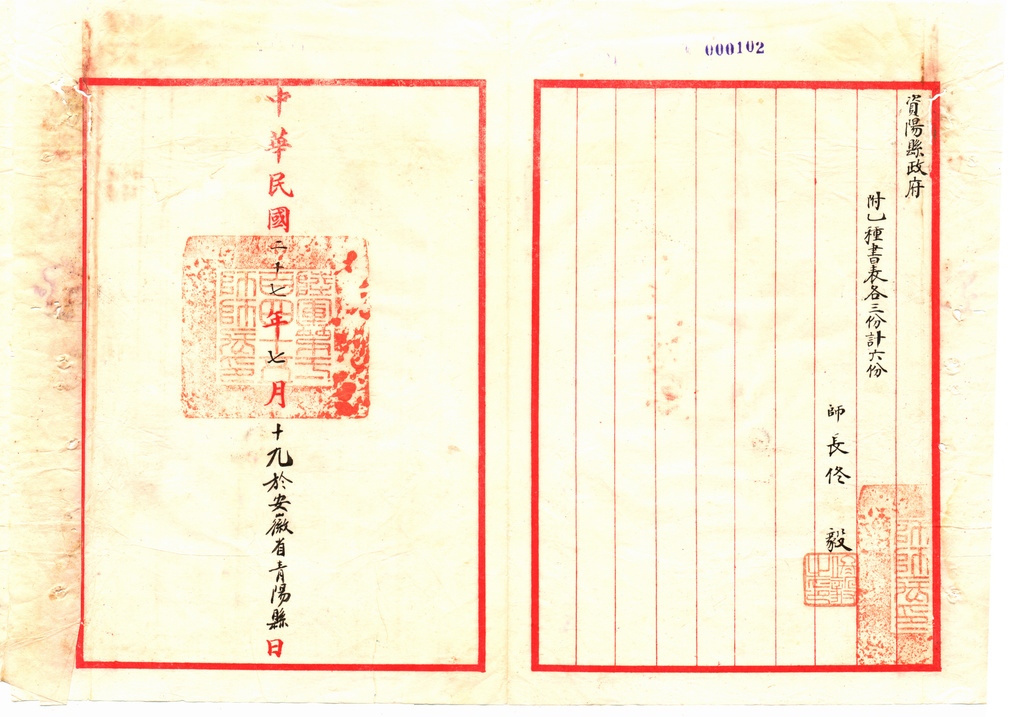 000102
資陽縣政府
附乙種書表各三份計六份
師長佟 毅
佟毅之印
中華民國二十七年七月十九於安徽省青陽縣日
陸軍第一百四十六師師長印